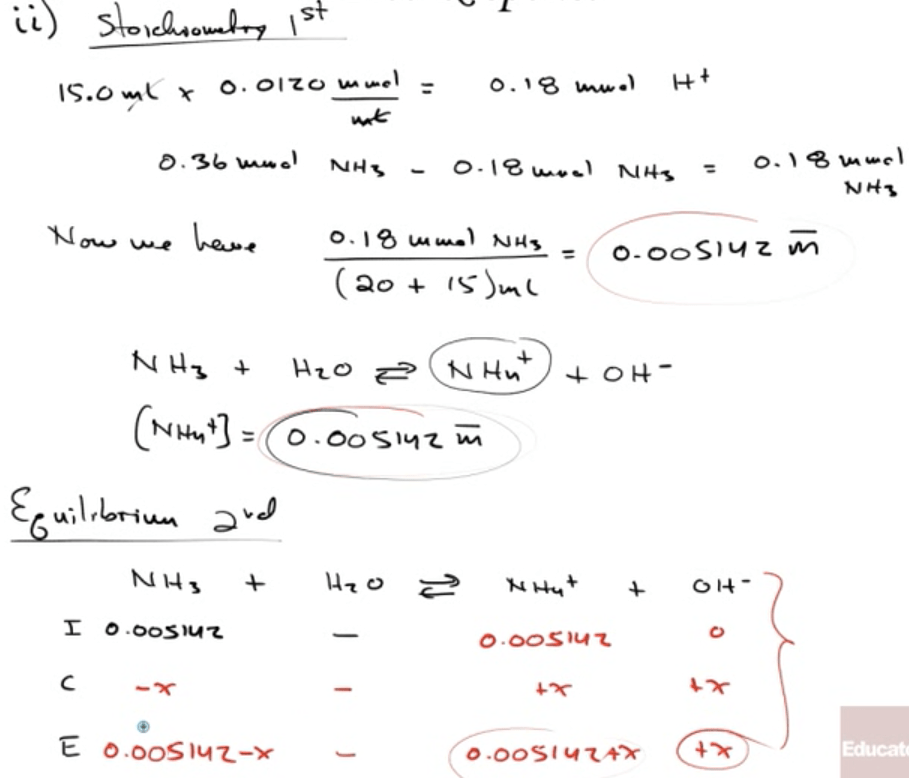 ii) Stoichiometry 1st
15.0 ml x 0.0120 mmol/ml = 0.18 mmol H+
0.36 mmol NH3 - 0.18 mmol NH3 = 0.18 mmol NH3
Now we have 0.18 mmol NH3 / (20 + 15)ml = 0.005142 m̅
NH3 + H2O ⇌ NH4+ + OH-
[NH4+] = 0.005142 m̅
Equilibrium 2nd
NH3 + H2O ⇌ NH4+ + OH-
I 0.005142 — 0.005142 0
C -x — +x +x
E 0.005142-x — 0.005142+x +x
Educat